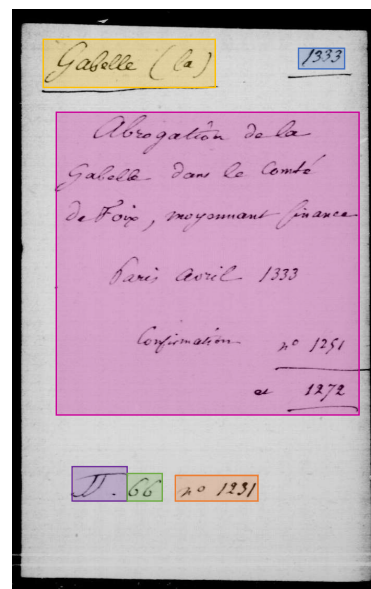 Gabelle (la) 1333
Abrogation de la
Gabelle dans le Comté
de Foix, moyennant finance
Paris avril 1333
Confirmation nº 1251
et 1272
JJ. 66 nº 1231